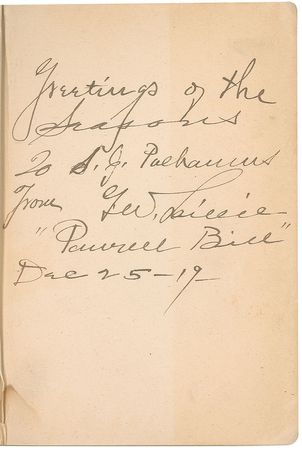 Greetings of the
Seasons
To S. G. Polhamus
From G.W. Lillie
"Pawnee Bill"
Dec 25-19